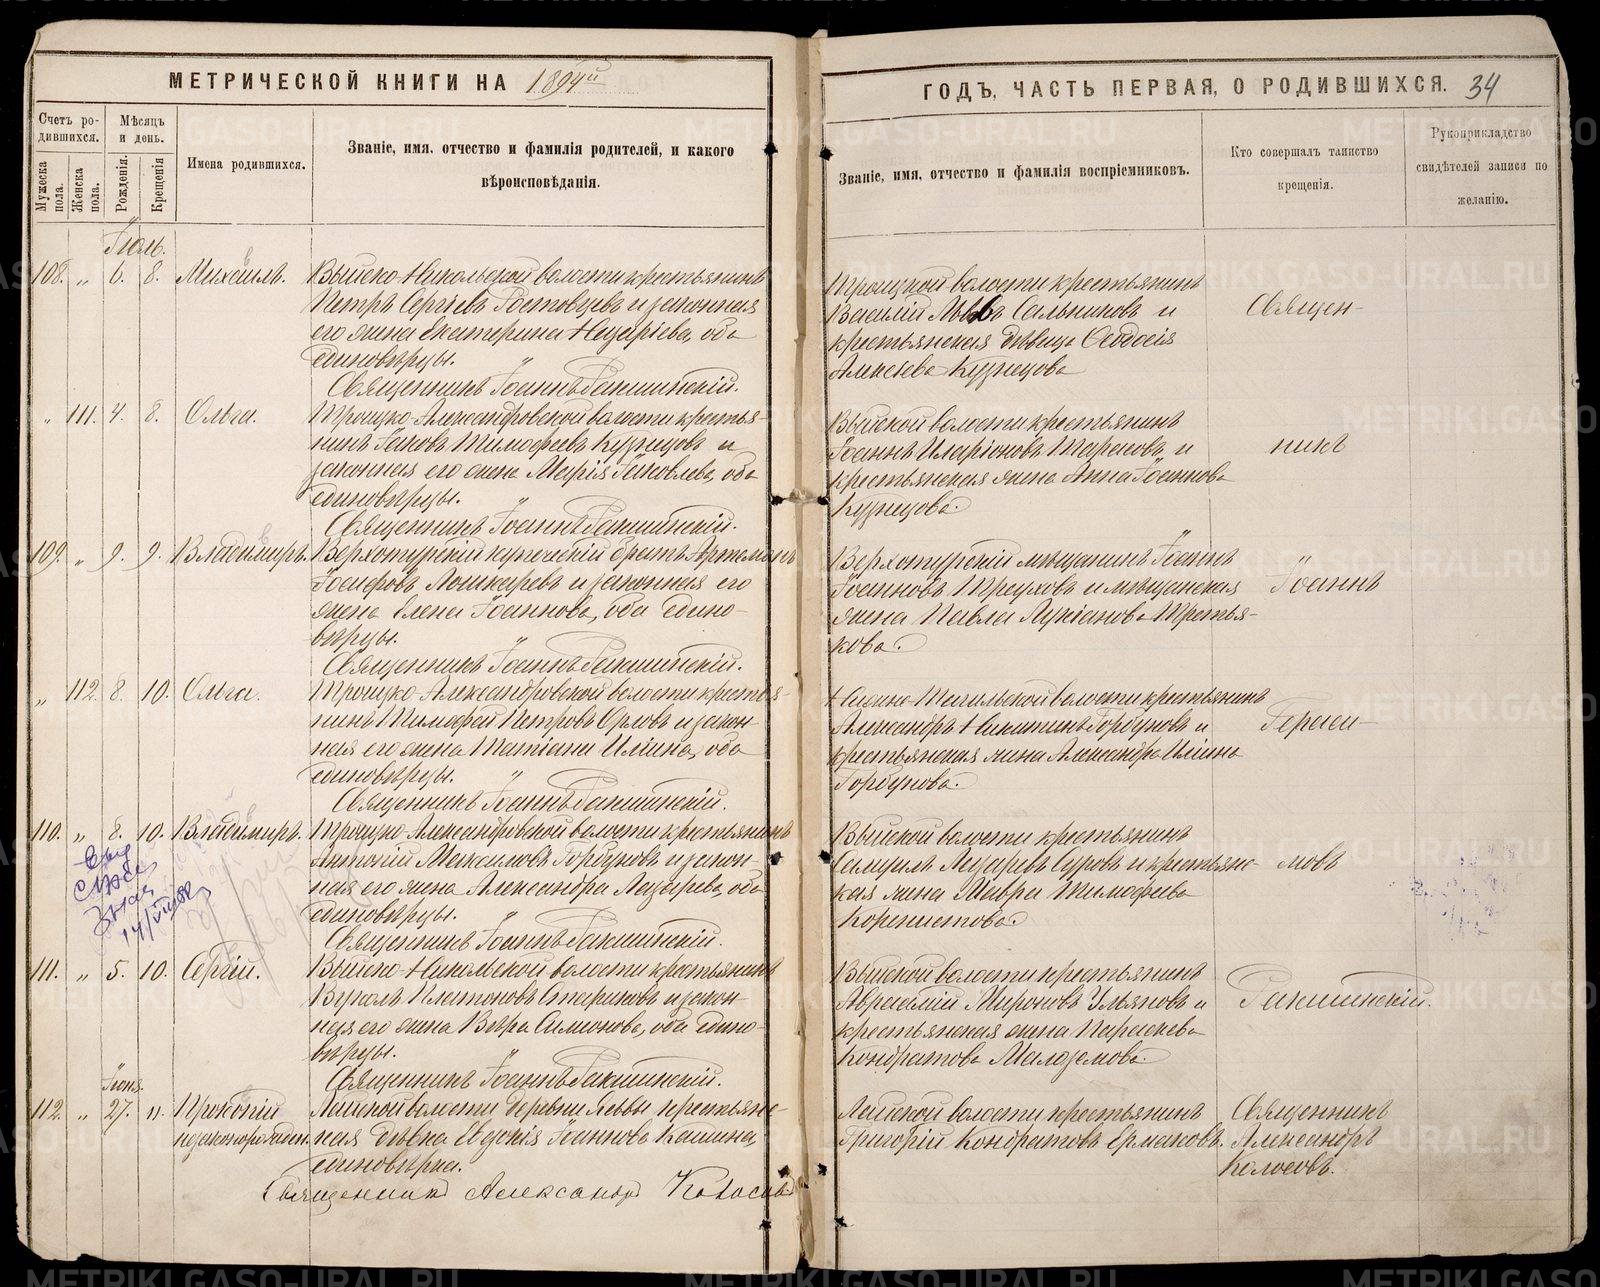 МЕТРИЧЕСКОЙ КНИГИ НА 1894й
Счетъ ро-
дившихся.
Мужеска пола.
Женска пола.
Мѣсяцъ
и день.
Рожденія.
Крещенія
Имена родившихся.
Званіе, имя, отчество и фамилія родителей, и какого
вѣроисповѣданія.
Іюль.
108. „ 6. 8. Михаилъ. Выйско-Никольской волости крестьянинъ
Петръ Сергіевъ Ростовцевъ и законная
его жена Екатерина Назаріева, оба
единовѣрцы.
Священникъ Іоаннъ Ракшинскій.
„ 111. 4. 8. Ольга. Троицко-Александровской волости крестья-
нинъ Іаковъ Тимофеевъ Кузнецовъ и
законная его жена Марія Іаковлева, оба
единовѣрцы.
Священникъ Іоаннъ Ракшинскій.
109. „ 9. 9. Владимиръ. Верхотурскій купеческій братъ Артемонъ
Іосифовъ Лошкаревъ и законная его
жена Елена Іоаннова, оба едино-
вѣрцы.
Священникъ Іоаннъ Ракшинскій.
„ 112. 8. 10. Ольга. Троицко-Александровской волости крестья-
нинъ Тимофей Петровъ Орловъ и закон-
ная его жена Татіана Иліина, оба
единовѣрцы.
Священникъ Іоаннъ Ракшинскій.
110. „ 8. 10. Владимиръ. Троицко-Александровской волости крестьянинъ
Антоній Максимовъ Горбуновъ и закон-
ная его жена Александра Лазарева, оба
единовѣрцы.
Священникъ Іоаннъ Ракшинскій.
111. „ 5. 10. Сергій. Выйско-Никольской волости крестьянинъ
Вуколъ Платоновъ Стариковъ и закон-
ная его жена Вѣра Симонова, оба едино-
вѣрцы.
Священникъ Іоаннъ Ракшинскій.
Іюня.
112. „ 27. 11. Прокопій Лайской волости деревни Реввы крестьянс-
незаконорожден. кая дѣвка Евдокія Іоаннова Кашина,
единовѣрка.
Священникъ Александръ Колосовъ
ГОДЪ, ЧАСТЬ ПЕРВАЯ, О РОДИВШИХСЯ. 34
Званіе, имя, отчество и фамилія воспріемниковъ.
Кто совершалъ таинство
крещенія.
Рукоприкладство
свидѣтелей записи по
желанію.
Троицкой волости крестьянинъ
Василій Львовъ Сальниковъ и
крестьянская дѣвица Ѳеодосія
Алексѣева Кузнецова
Священ-
Выйской волости крестьянинъ
Іоаннъ Иларіоновъ Тарасовъ и
крестьянская жена Анна Іоаннова
Кузнецова.
никъ
Верхотурскій мѣщанинъ Іоаннъ
Іоанновъ Треуховъ и мѣщанская
жена Павла Лукіанова Третья-
кова.
Іоаннъ
Нижне-Тагильской волости крестьянинъ
Александръ Никитинъ Горбуновъ и
крестьянская жена Александра Иліина
Горбунова.
Гераси-
Выйской волости крестьянинъ
Самуилъ Лазаревъ Суровъ и крестьянс-
кая жена Мавра Тимофеева
Коренистова.
мовъ
Выйской волости крестьянинъ
Авраамій Мироновъ Ульяновъ и
крестьянская жена Параскева
Кондратова Малоземова.
Ракшинскій.
Лайской волости крестьянинъ
Григорій Кондратовъ Ермаковъ.
Священникъ
Александръ
Колосовъ.
METRIKI.GASO-URAL.RU